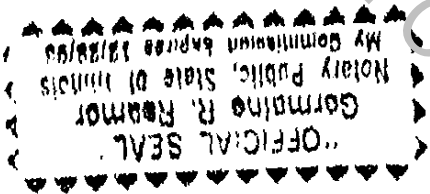 "OFFICIAL SEAL"
Germaine R. Reamer
Notary Public, State of Illinois
My Commission Expires